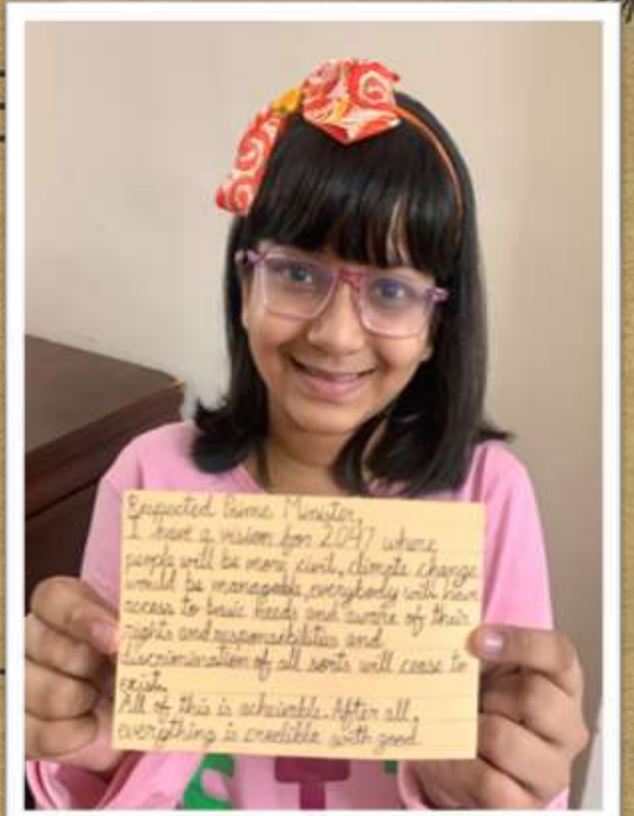 Respected Prime Minister,
I have a vision for 2047 where
people will be more civil, climate change
would be managable, everybody will have
access to basic needs and aware of their
rights and responsebilities and
discrimination of all sorts will cease to
exist.
All of this is acheivable. After all,
everything is credible with good